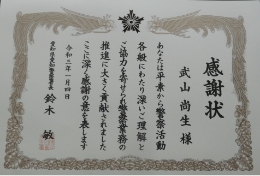 感謝状
武山尚生 様
あなたは平素から警察活動
各般にわたり深いご理解と
ご協力を寄せられ警察業務の
推進に大きく貢献されました
ここに深く感謝の意を表します
令和三年一月四日
鈴木 敏